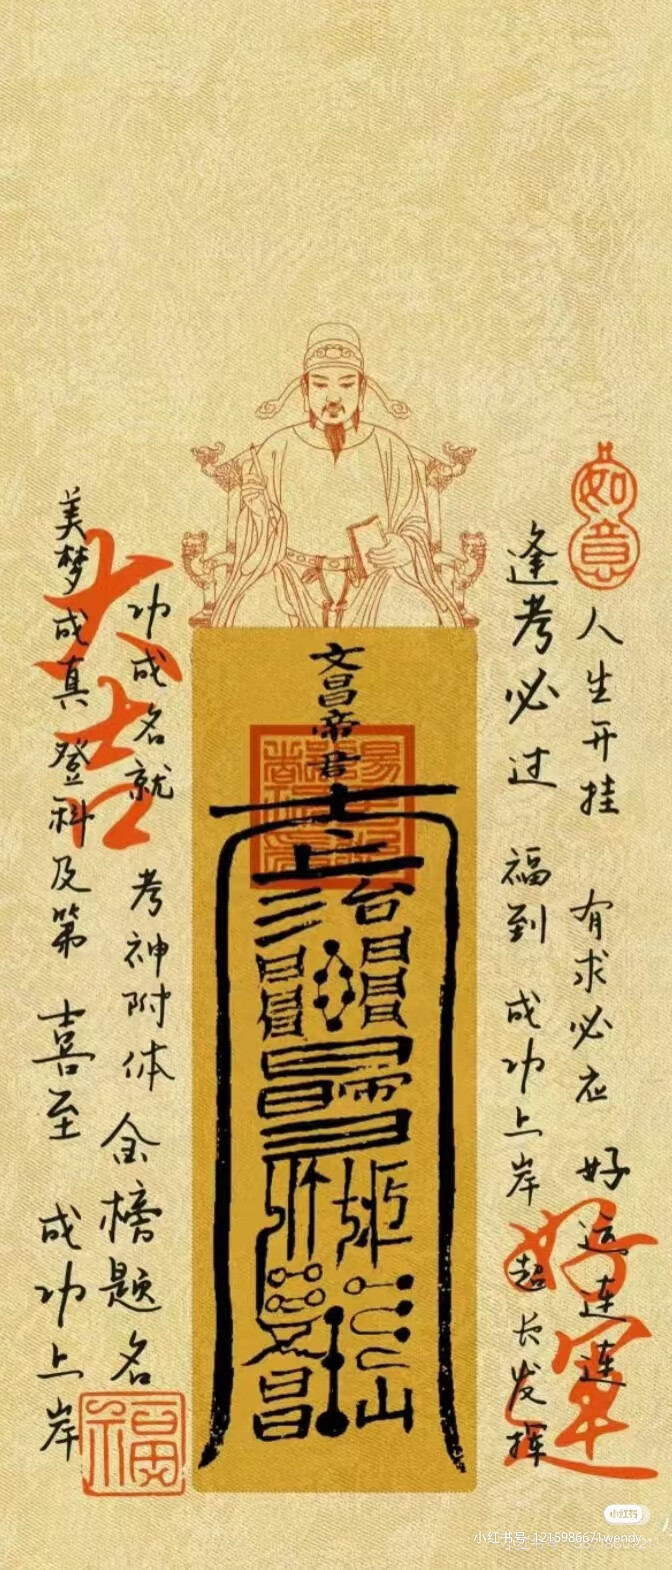 如意
人生开挂 有求必应 好运连连
逢考必过 福到 成功上岸 超长发挥
好運
文昌帝君
台
昌
山
大吉
功成名就 考神附体 金榜题名
美梦成真 登科及第 喜至 成功上岸
福
小红书
小红书号: 1215986671wendy